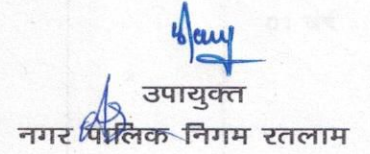 उपायुक्त
नगर पालिक निगम रतलाम